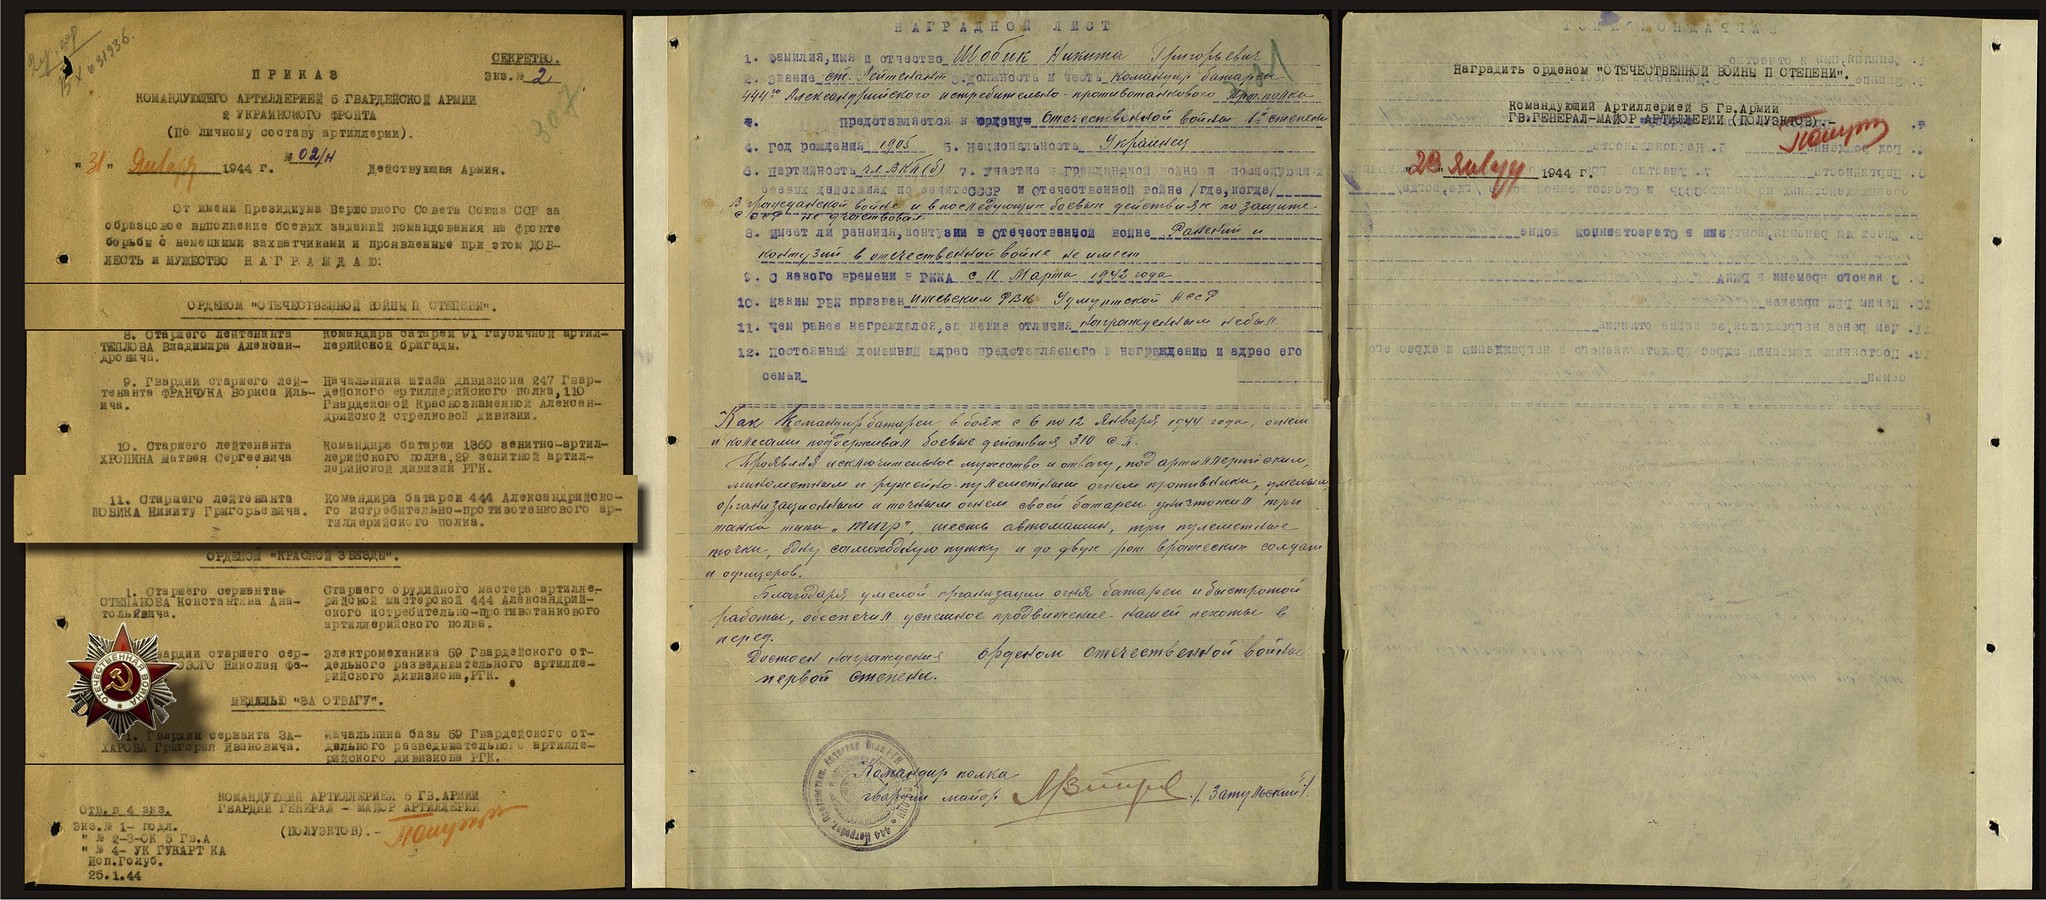 СЕКРЕТНО.
Экз.№ 2
307
ПРИКАЗ
КОМАНДУЮЩЕГО АРТИЛЛЕРИЕЙ 5 ГВАРДЕЙСКОЙ АРМИИ
2 УКРАИНСКОГО ФРОНТА
(По личному составу артиллерии).
№ 02/Н
"31" Января 1944 г. Действующая Армия.
От имени Президиума Верховного Совета Союза ССР за
образцовое выполнение боевых заданий командования на фронте
борьбы с немецкими захватчиками и проявленные при этом ДОБ-
ЛЕСТЬ и МУЖЕСТВО НАГРАЖДАЮ:
ОРДЕНОМ "ОТЕЧЕСТВЕННОЙ ВОЙНЫ П СТЕПЕНИ".
8. Старшего лейтенанта Командира батареи 91 гаубичной артил-
ТЕПЛОВА Владимира Алексан- лерийской бригады.
дровича.
9. Гвардии старшего лей- Начальника штаба дивизиона 247 Гвар-
тенанта ФРАНЧУКА Бориса Иль- дейского артиллерийского полка,110
ича. Гвардейской Краснознаменной Алексан-
дрийской стрелковой дивизии.
10. Старшего лейтенанта Командира батареи 1360 зенитно-артил-
ХРОПИНА Матвея Сергеевича лерийского полка,29 зенитной артил-
лерийской дивизии РГК.
11. Старшего лейтенанта Командира батареи 444 Александрийско-
ШОБИКА Никиту Григорьевича. го истребительно-противотанкового ар-
тиллерийского полка.
ОРДЕНОМ "КРАСНОЙ ЗВЕЗДЫ".
1. Старшего сержанта Старшего орудийного мастера артилле-
СТЕПАНОВА Константина Ана- рийской мастерской 444 Александрий-
тольевича. ского истребительно-противотанкового
артиллерийского полка.
вардии старшего сер- Электромеханика 59 Гвардейского от-
ОВОГО Николая Фе- дельного разведывательного артилле-
рийского дивизиона,РГК.
МЕДАЛЬЮ "ЗА ОТВАГУ".
1. Гвардии сержанта ЗА- Начальника базы 59 Гвардейского от-
ХАРОВА Григория Ивановича. дельного разведывательного артилле-
рийского дивизиона РГК.
ОТЕЧЕСТВЕННАЯ ВОЙНА
КОМАНДУЮЩИЙ АРТИЛЛЕРИЕЙ 5 ГВ.АРМИИ
ГВАРДИИ ГЕНЕРАЛ - МАЙОР АРТИЛЛЕРИИ
(ПОЛУЭКТОВ).-
Отп.в 4 экз.
Экз.№ 1- подл.
" № 2-3-ОК 5 Гв.А
" № 4- УК ГУКАРТ КА
Исп.Голуб.
25.1.44
НАГРАДНОЙ ЛИСТ
1. фамилия,имя и отчество Шобик Никита Григорьевич
2. Звание ст. Лейтенант 3.должность и часть командир батареи
444го Александрийского истребительно-противотанкового Арт.полка
Представляется к ордену Отечественной войны 1й степени
4. Год рождения 1905 5. Национальность Украинец
6. Партийность чл.ВКП(б) 7. участие в гражданской война и последующих
боевых действиях по защите СССР и Отечественной войне /где,когда/
В гражданской войне и в последующих боевых действиях по защите
СССР не участвовал
8. Имеет ли ранения,контузии в Отечественной войне Ранений и
контузий в отечественной войне не имеет
9. С какого времени в РККА с 11 Марта 1942 года
10. Каким РВК призван Ижевским РВК Удмуртской АССР
11. чем ранее награждался,за какие отличия награжденным не был
12. Постоянный домашний адрес представляемого к награждению и адрес его
семьи
Как командир батареи в боях с 6 по 12 января 1944 года, огнем
и колесами поддерживал боевые действия 310 с.п.
Проявляя исключительное мужество и отвагу, под артиллерийским,
минометным и ружейно-пулеметным огнем противника, умелым
организационным и точным огнем своей батареи уничтожил три
танка типа „тигр", шесть автомашин, три пулеметные
точки, одну самоходную пушку и до двух рот вражеских солдат
и офицеров.
Благодаря умелой организации огня батареи и быстротой
работы, обеспечил успешное продвижение нашей пехоты в
перед.
Достоен награждения орденом отечественной войны
первой степени.
Командир полка
гвардии майор /Затульский/
Наградить орденом "ОТЕЧЕСТВЕННОЙ ВОЙНЫ П СТЕПЕНИ".
Командующий Артиллерией 5 Гв.Армии
ГВ.ГЕНЕРАЛ-МАЙОР АРТИЛЛЕРИИ (ПОЛУЭКТОВ).-
"29" Января 1944 г.